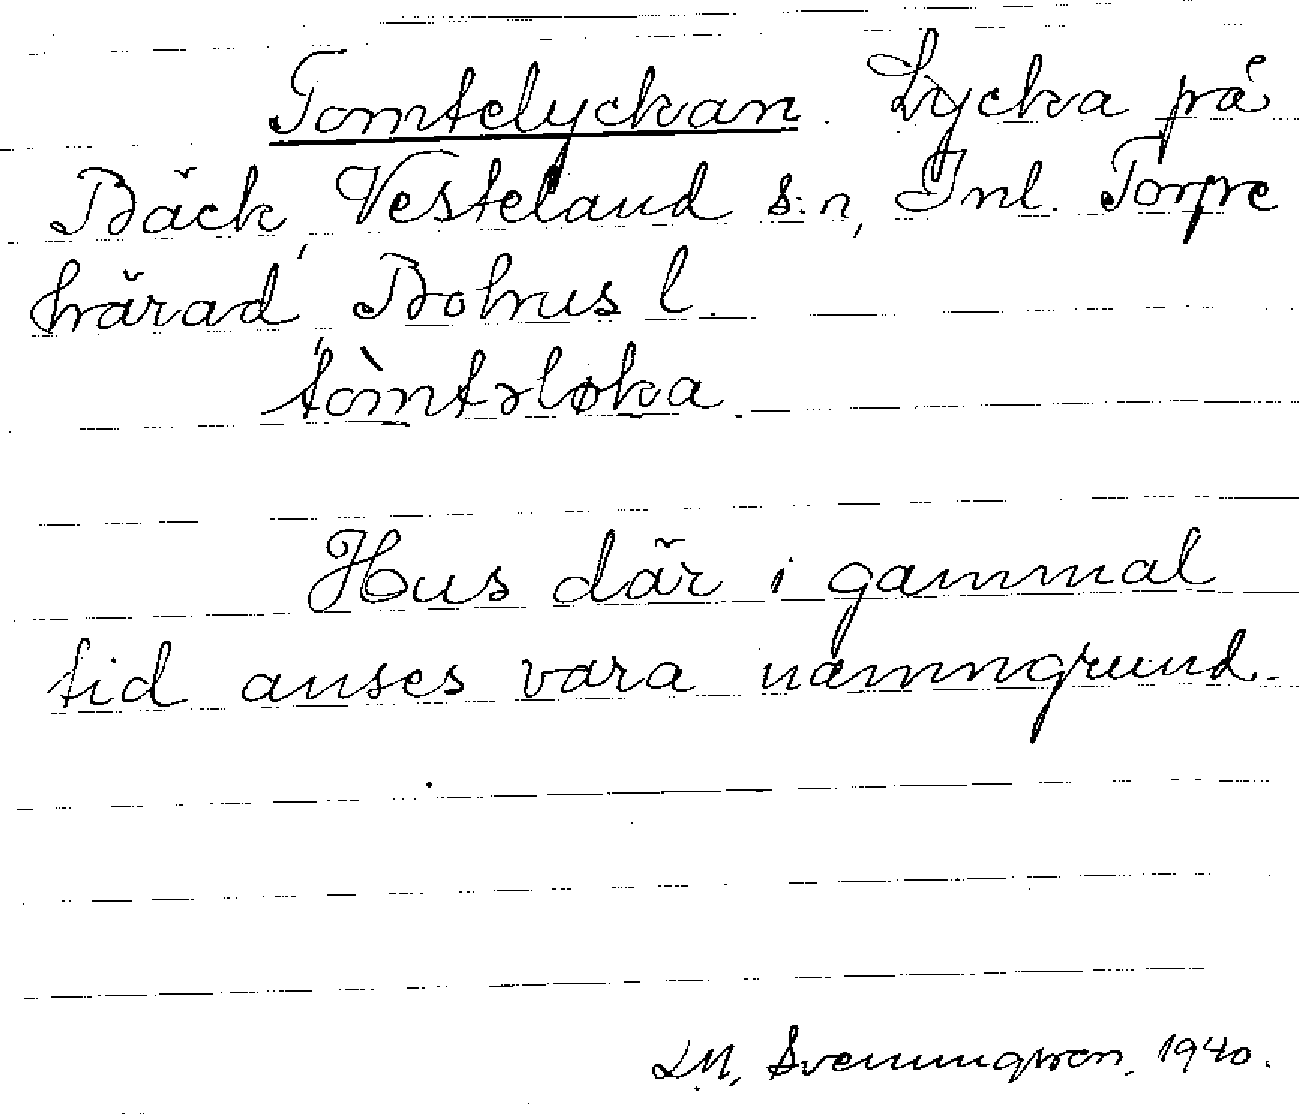 Tomtelyckan. Lycka på
Bäck, Vesteland s:n, Inl. Torpe
härad, Bohus l.
tòmtəløka.
Hus där i gammal
tid anses vara namngrund.
LM, Svenungsson, 1940.